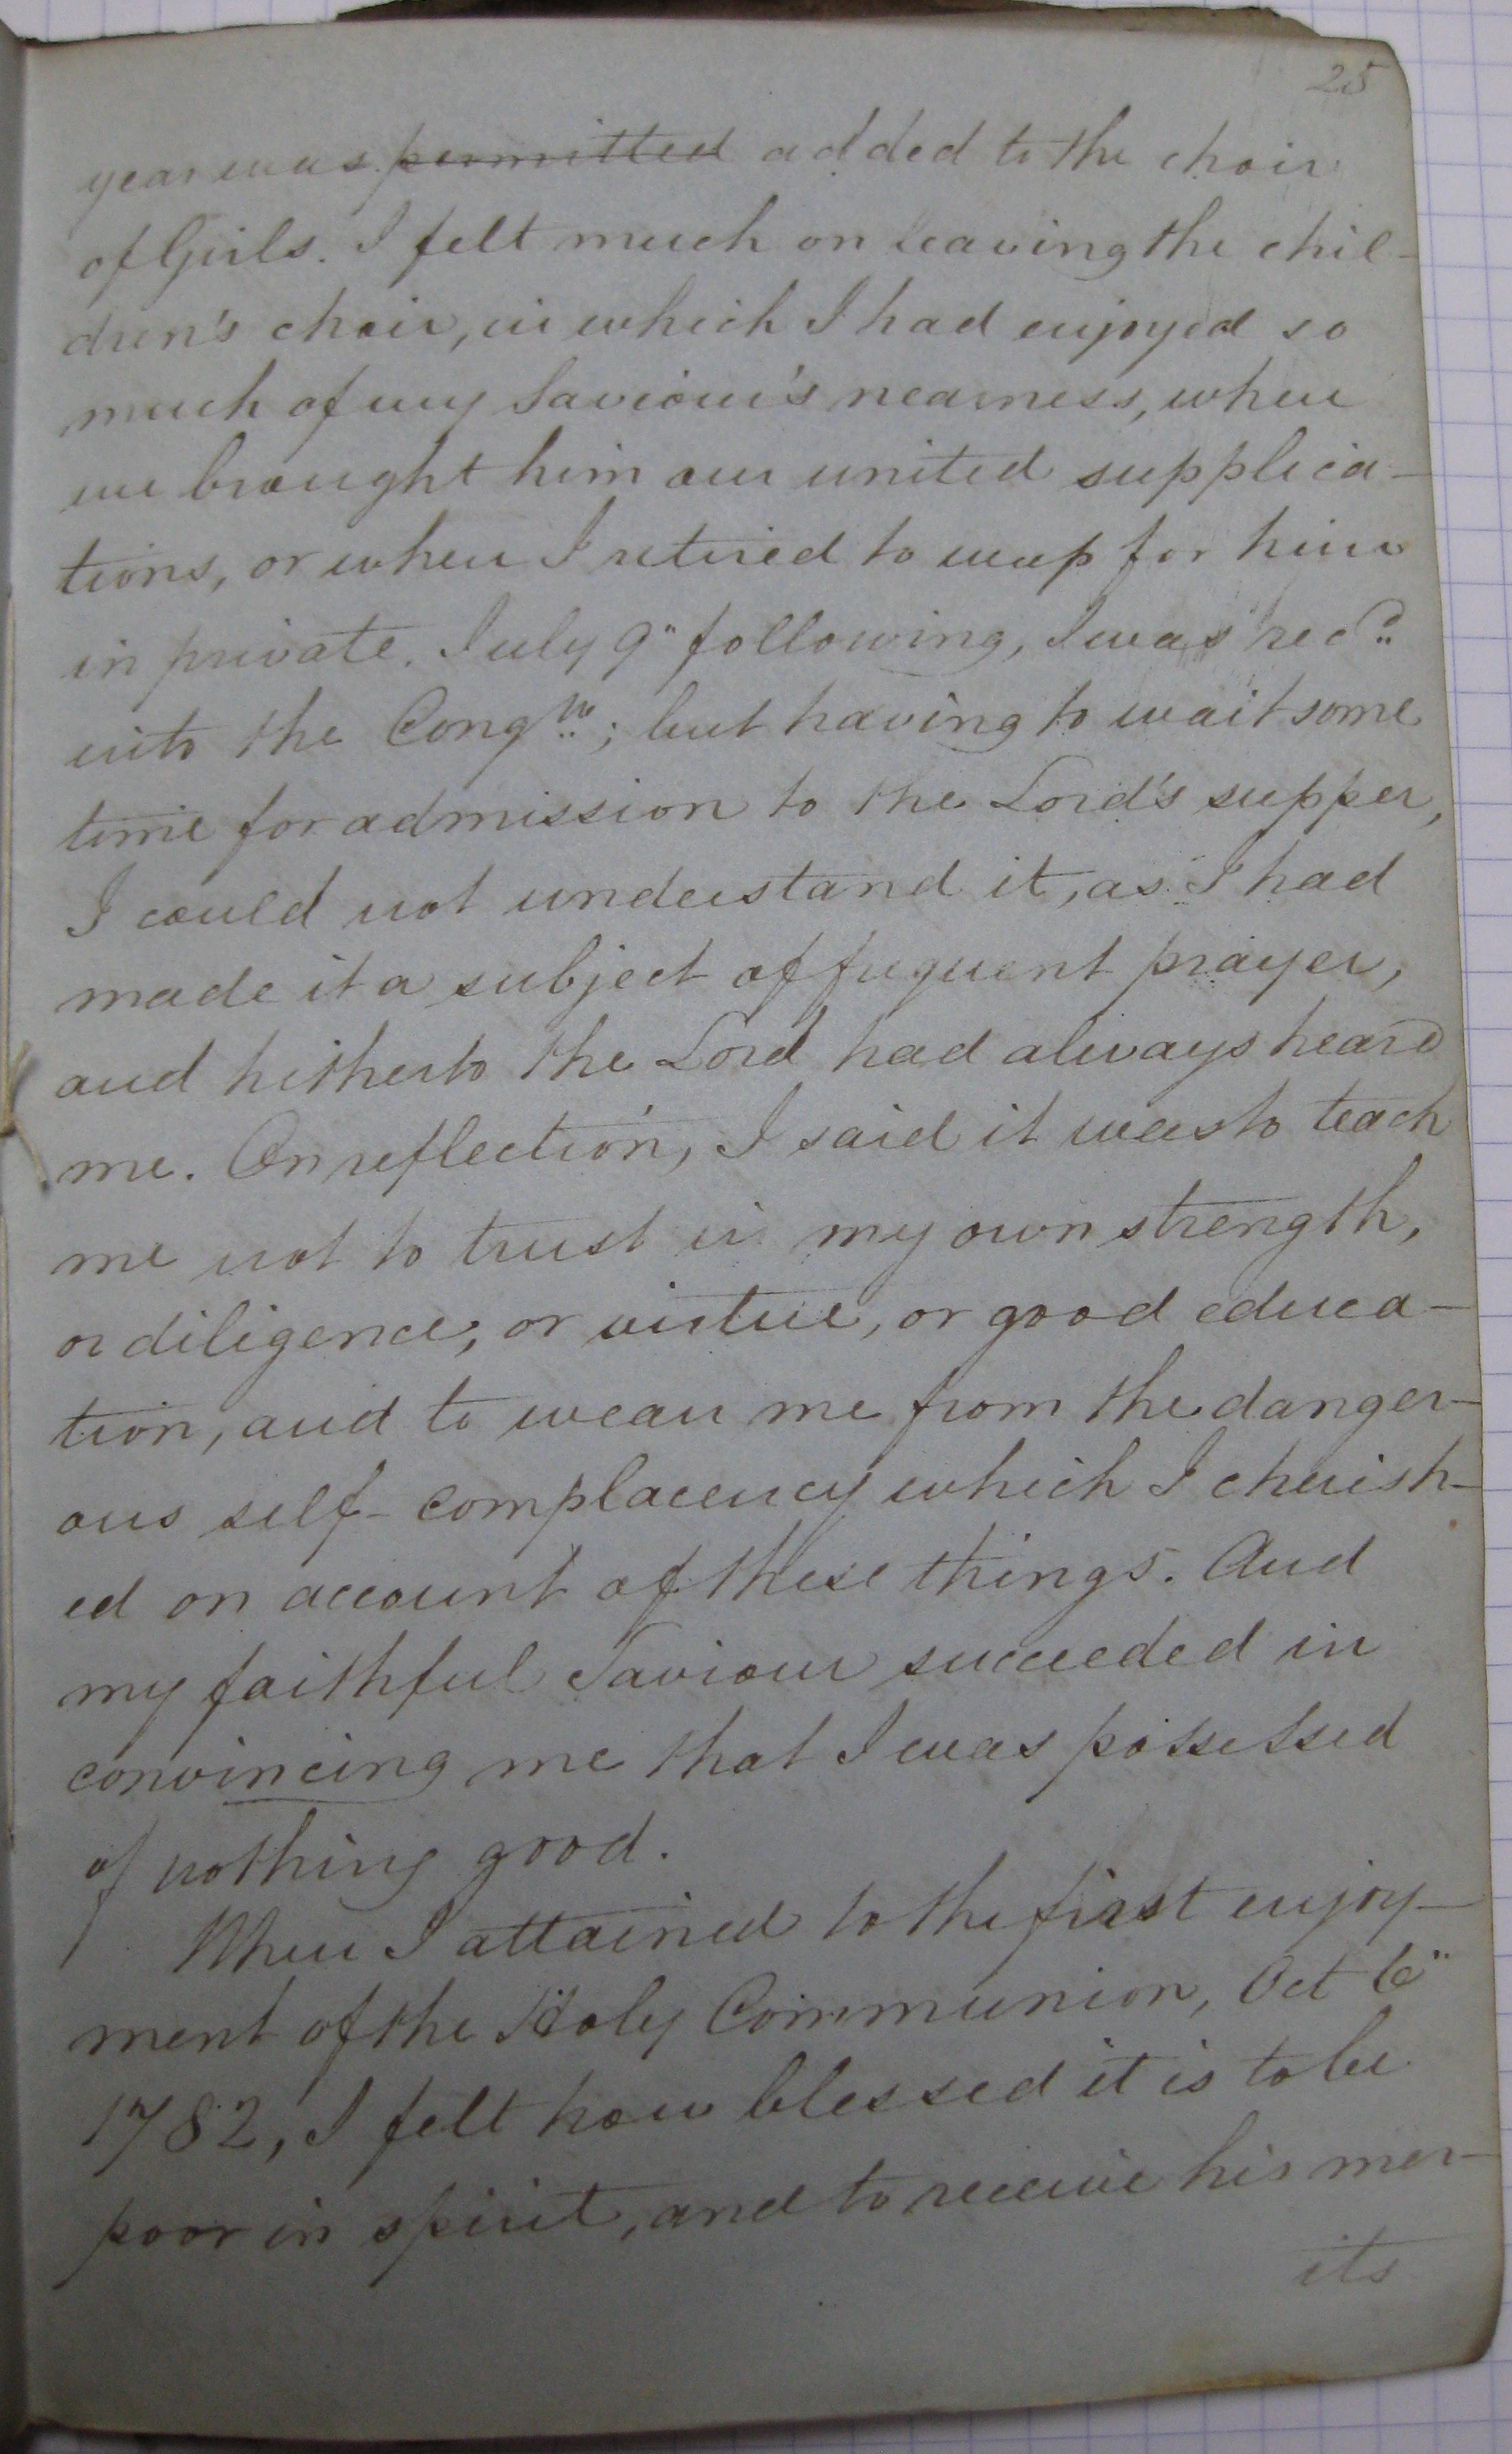 25
year was permitted added to the choir
of Girls. I felt much on leaving the chil-
dren's choir, in which I had enjoyed so
much of my Saviour's nearness, when
we brought him our united supplica-
tions, or when I retired to weep for him
in private. July 9" following, I was recd
into the Congn; but having to wait some
time for admission to the Lord's supper,
I could not understand it, as I had
made it a subject of frequent prayer,
and hitherto the Lord had always heard
me. On reflection, I said it was to teach
me not to trust in my own strength,
or diligence, or virtue, or good educa-
tion, and to wean me from the danger-
ous self-complacency which I cherish-
ed on account of these things. And
my faithful Saviour succeeded in
convincing me that I was possessed
of nothing good.
When I attained to the first enjoy-
ment of the Holy Communion, Oct 6"
1782, I felt how blessed it is to be
poor in spirit, and to receive his mer-
its